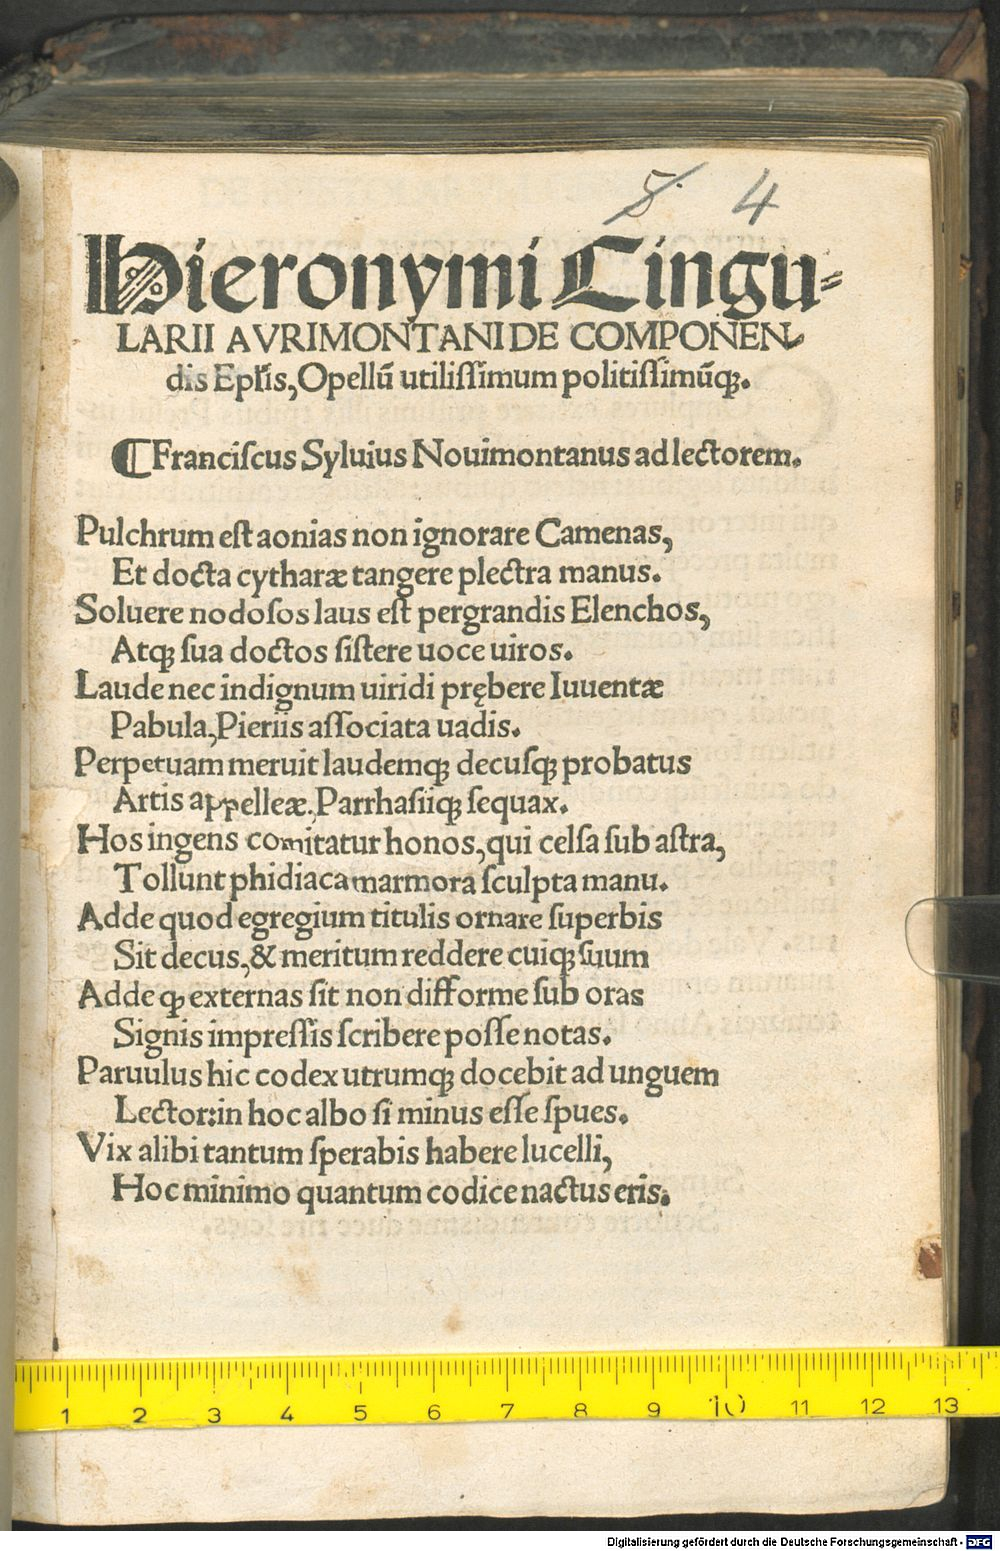 8. 4
Hieronymi Cingu-
LARII AVRIMONTANI DE COMPONEN-
dis Epl̃is, Opellũ utilissimum politissimũq;.
¶ Franciscus Syluius Nouimontanus ad lectorem.
Pulchrum est aonias non ignorare Camenas,
Et docta cytharæ tangere plectra manus.
Soluere nodosos laus est pergrandis Elenchos,
Atq; sua doctos sistere uoce uiros.
Laude nec indignum uiridi prębere Iuuentæ
Pabula, Pieriis associata uadis.
Perpetuam meruit laudemq; decusq; probatus
Artis appelleæ, Parrhasiiq; sequax.
Hos ingens comitatur honos, qui celsa sub astra,
Tollunt phidiaca marmora sculpta manu.
Adde quod egregium titulis ornare superbis
Sit decus, & meritum reddere cuiq; suum
Adde q; externas sit non difforme sub oras
Signis impressis scribere posse notas.
Paruulus hic codex utrumq; docebit ad unguem
Lector: in hoc albo si minus esse spues.
Vix alibi tantum sperabis habere lucelli,
Hoc minimo quantum codice nactus eris.
1 2 3 4 5 6 7 8 9 10 11 12 13
Digitalisierung gefördert durch die Deutsche Forschungsgemeinschaft - DFG